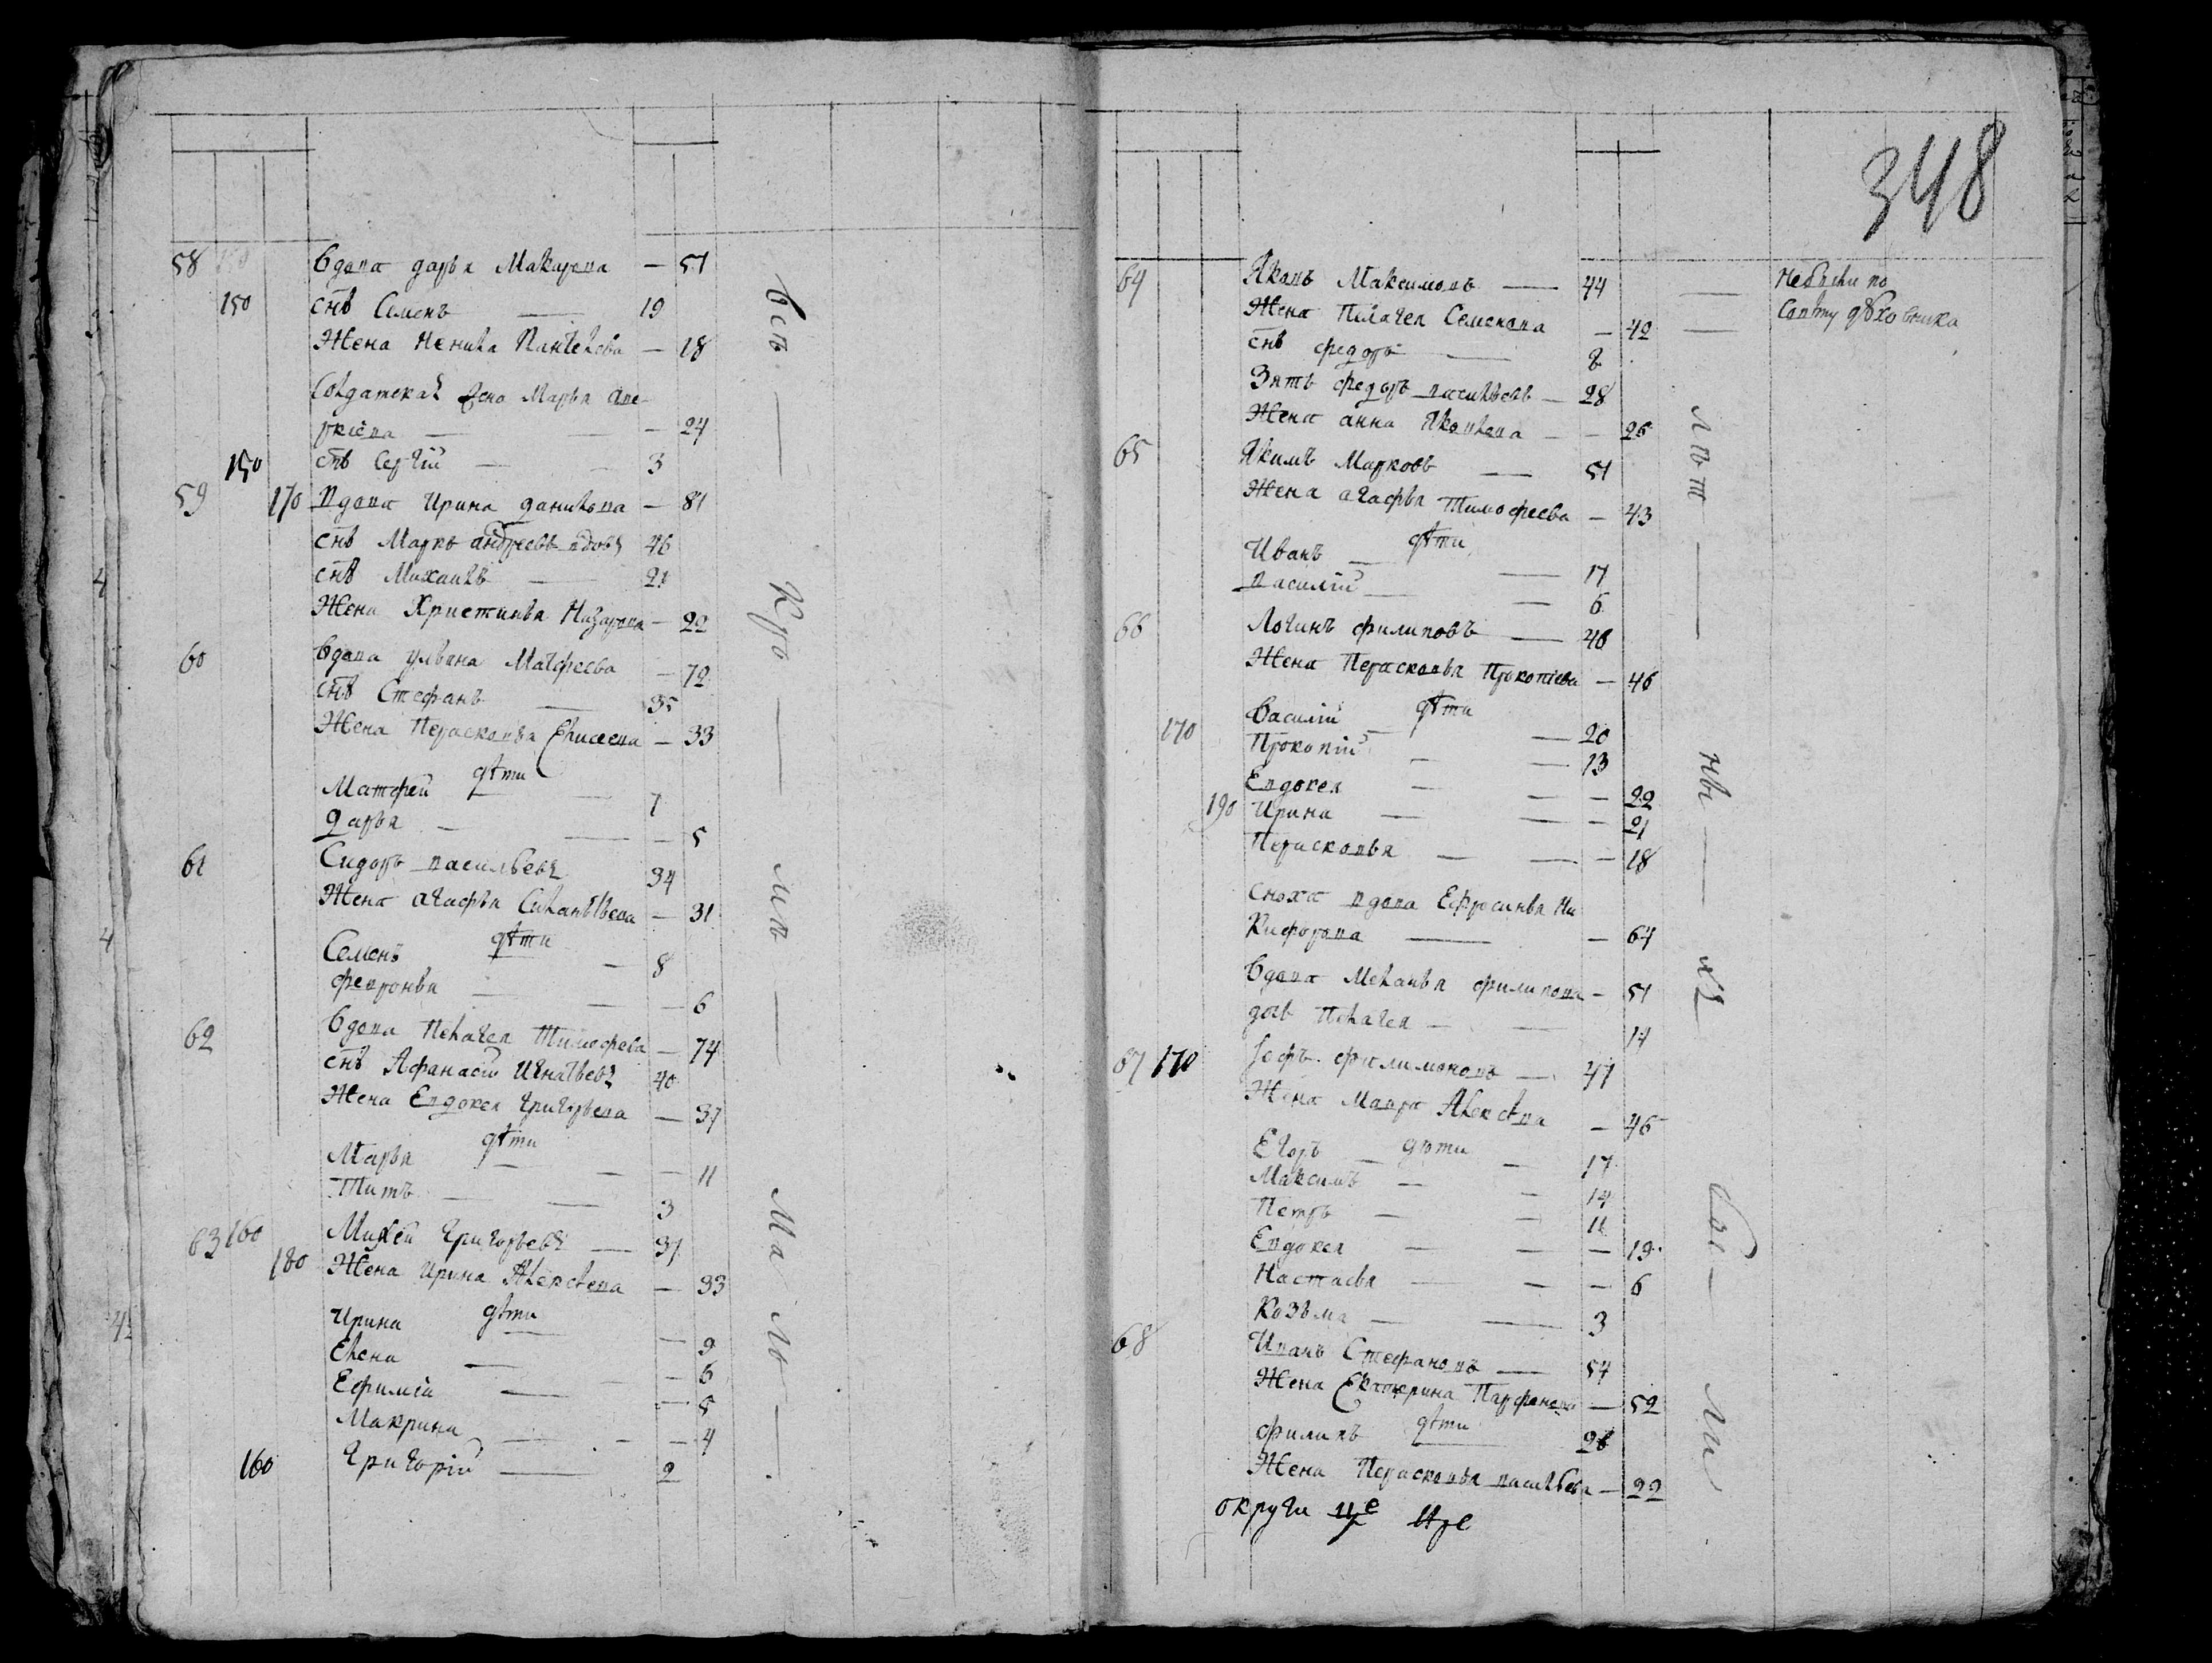 348
58 Вдова дарья Макарова — 51
150 снъ Семенъ — 19
Жена Ненила Пантелева — 18
Солдатская жена Марья Аве-
ркiева — 24
150 снъ Сергiй — 3
59 170 Вдова Ирина данилова — 81
снъ Маркъ андреевъ вдовъ 46
снъ Михаилъ — 21
Жена Христинья Назарова — 22
60 Вдова ульяна Матфеева — 72
снъ Стефанъ — 35
Жена Перасковья Елисеева — 33
дѣти
Матфей — 7
дарья — 5
61 Сидоръ васильевъ 34
Жена агафья Силантьева — 31
дѣти
Семенъ — 8
февронья — 6
62 Вдова Пелагея Тимофеева — 74
снъ Афанасiй Игнатьевъ 40
Жена Евдокея григорьева — 37
дѣти
Марья — 11
Титъ — 3
63 160 Михей григорьевъ — 37
180 Жена Ирина Алексѣева — 33
дѣти
Ирина — 9
Елена — 6
Ефимiя — 5
Макрина — 4
160 григорiй — 2
Всѣ — Кро — мѣ — Ма ло —
64 Яковъ Максимовъ — 44 — Небыли по
Жена Пилагея Семенова — 42 —
снъ федоръ — 8
Зять федоръ васильевъ — 28
Жена анна Яковлева — 26
65 Якимъ Марковъ — 51
Жена агафья Тимофеева — 43
дѣти
Иванъ — 17
василiй — 6
66 Логинъ филиповъ — 48
Жена Перасковья Прокопiева — 46
дѣти
Василiй — 20
170 Прокопiй — 13
Евдокея — 22
190 Ирина — 21
Перасковья — 18
сноха вдова Ефросинья Ни
кифорова — 64
Вдова Меланья филипова — 51
дочь Пелагея — 14
67 170 филимоновъ — 47
Жена Мавра Алексѣева — 45
дѣти
Егоръ — 17
Максимъ — 14
Петръ — 11
Евдокея — 19
Настасья — 6
Козьма — 3
68 Иванъ Стефановъ — 54
Жена Екатерина Парфенова — 52
дѣти
филипъ 26
Жена Перасковья васильева — 22
округи
лѣт — ны — хъ — бы — ли